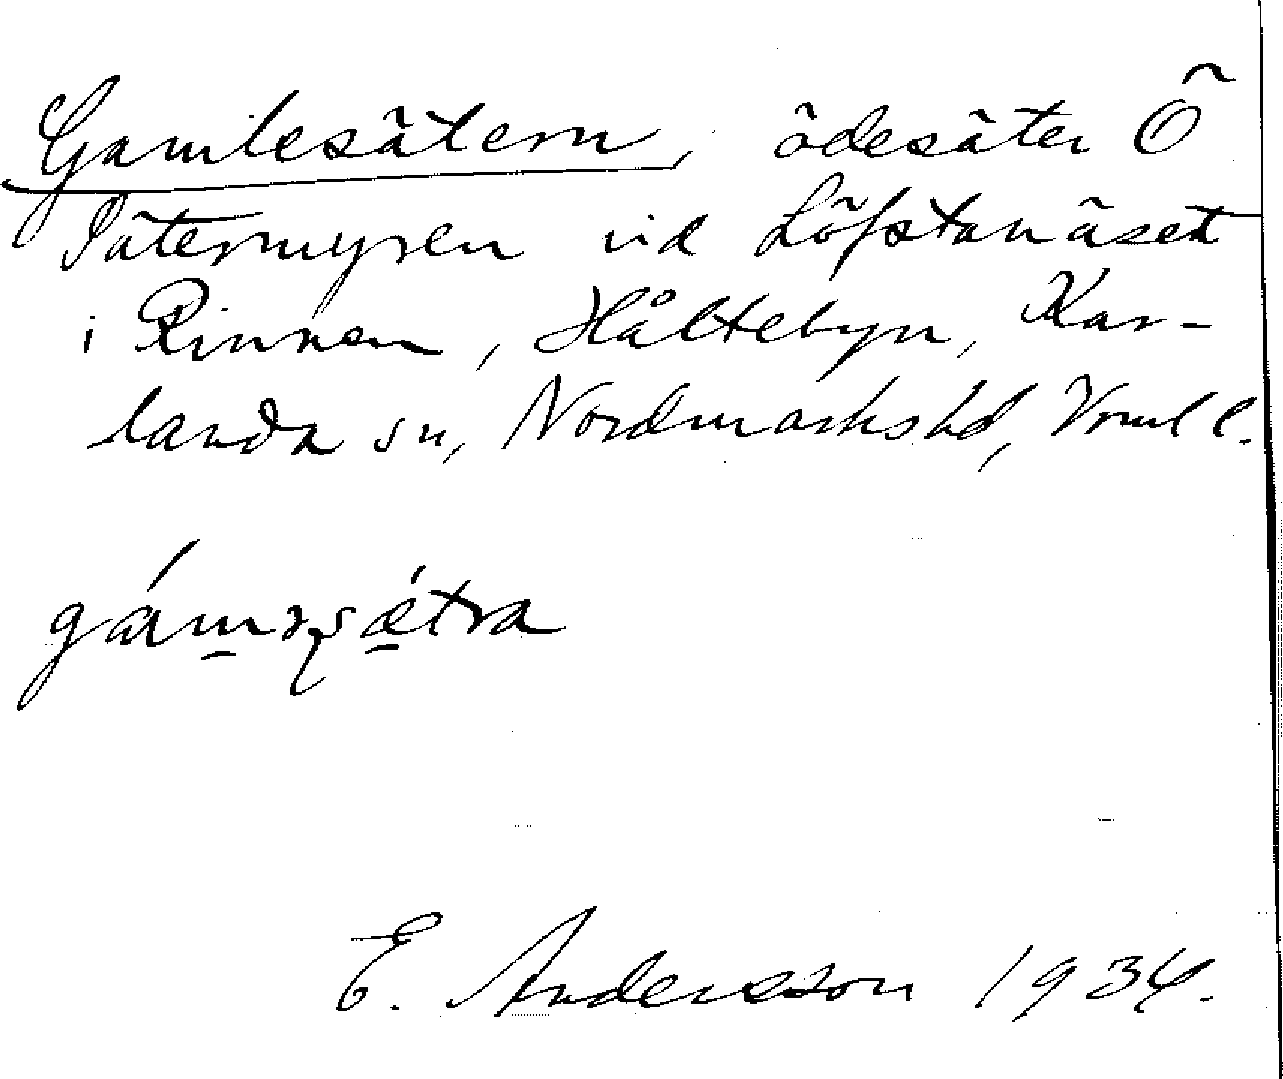 Gamlesätern, ödesäter Ö
Sätermyren vid Löfstanäset
i Rinnen, Håltebyn, Kar-
landa sn, Nordmarkshd, Vrml l.
E. Andersson 1934.